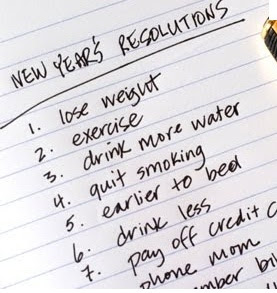 NEW YEAR'S RESOLUTIONS
1. lose weight
2. exercise
3. drink more water
4. quit smoking
5. earlier to bed
6. drink less
7. pay off credit c
phone mom
mber bi